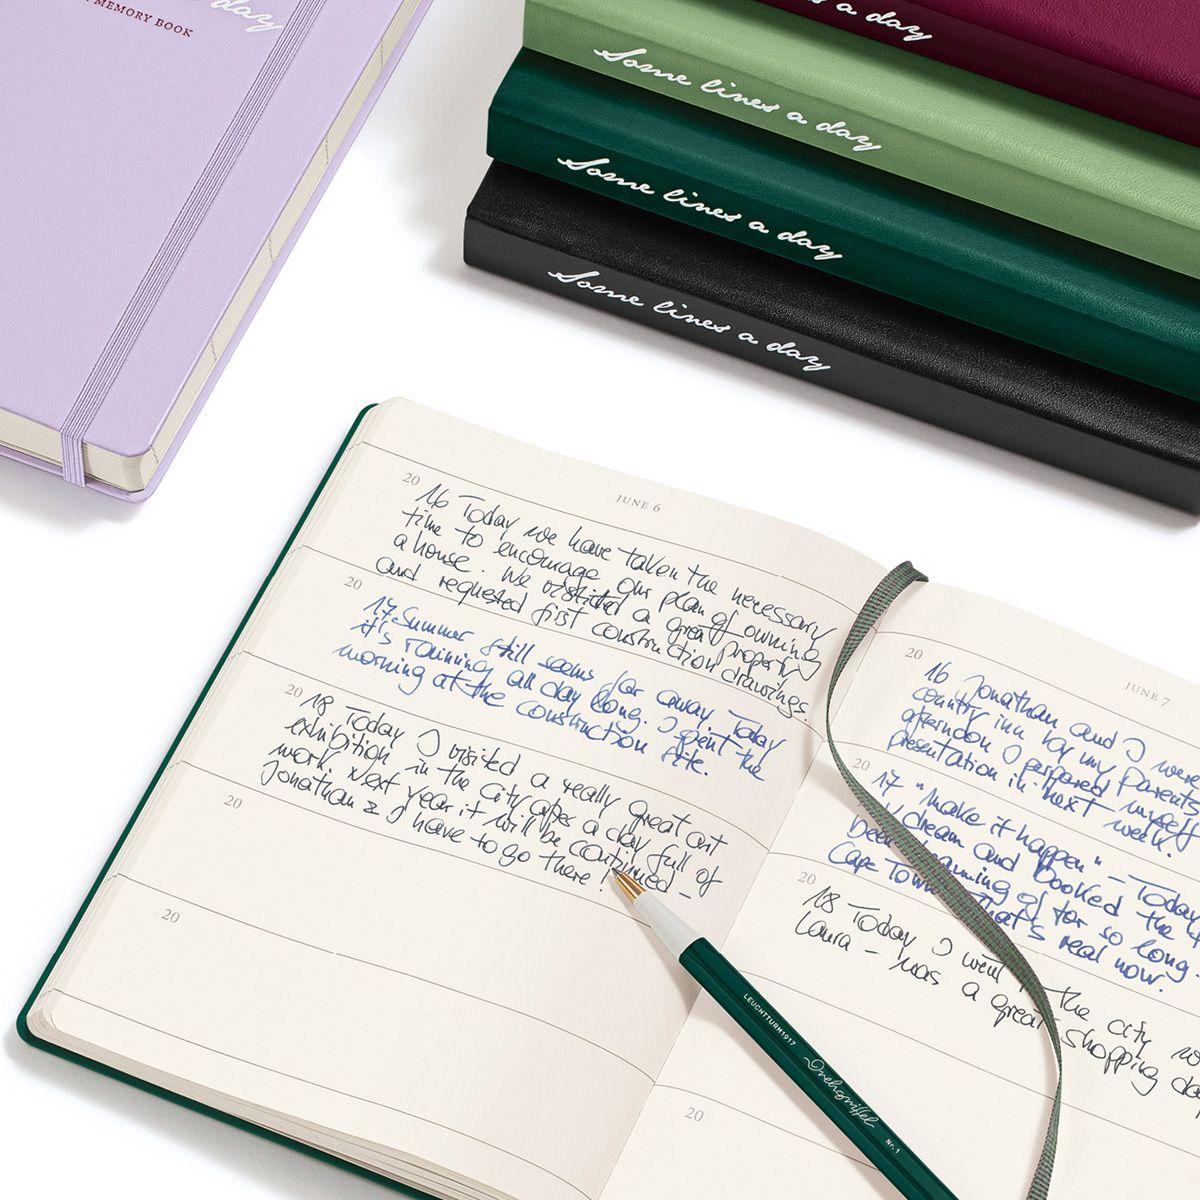 day
MEMORY BOOK
s a day
Some lines a day
Some lines a day
Some lines a day
JUNE 6
20
16 Today we have taken the necessary
time to encourage our plan of owning
a house. We visited a great property
and requested first construction drawings.
20
17. Summer still seems far away. Today
it's raining all day long. I spent the
morning at the construction site.
20
18 Today I visited a really great art
exhibition in the city after a day full of
work. Next year it will be continued –
Jonathan & I have to go there!
20
20
JUNE 7
20
16 Jonathan and I were
country inn for my parents
afternoon I prepared myself
presentation in next week.
20
17 "make it happen" – Today
dream and booked the
dreaming of for so long.
Cape Town that's real now.
20
18 Today I went the city
Laura – was a great shopping da
20
LEUCHTTURM1917
Drehgriffel
Nr. 1